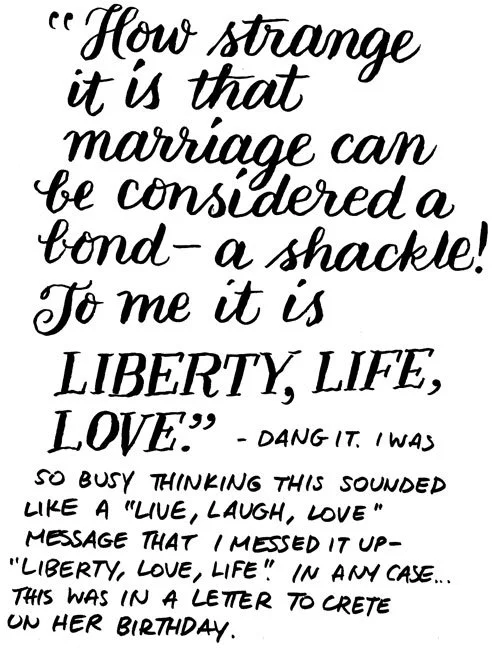 “How strange
it is that
marriage can
be considered a
bond – a shackle!
To me it is
LIBERTY, LIFE,
LOVE.” - DANG IT. I WAS
SO BUSY THINKING THIS SOUNDED
LIKE A "LIVE, LAUGH, LOVE"
MESSAGE THAT I MESSED IT UP-
"LIBERTY, LOVE, LIFE". IN ANY CASE...
THIS WAS IN A LETTER TO CRETE
ON HER BIRTHDAY.